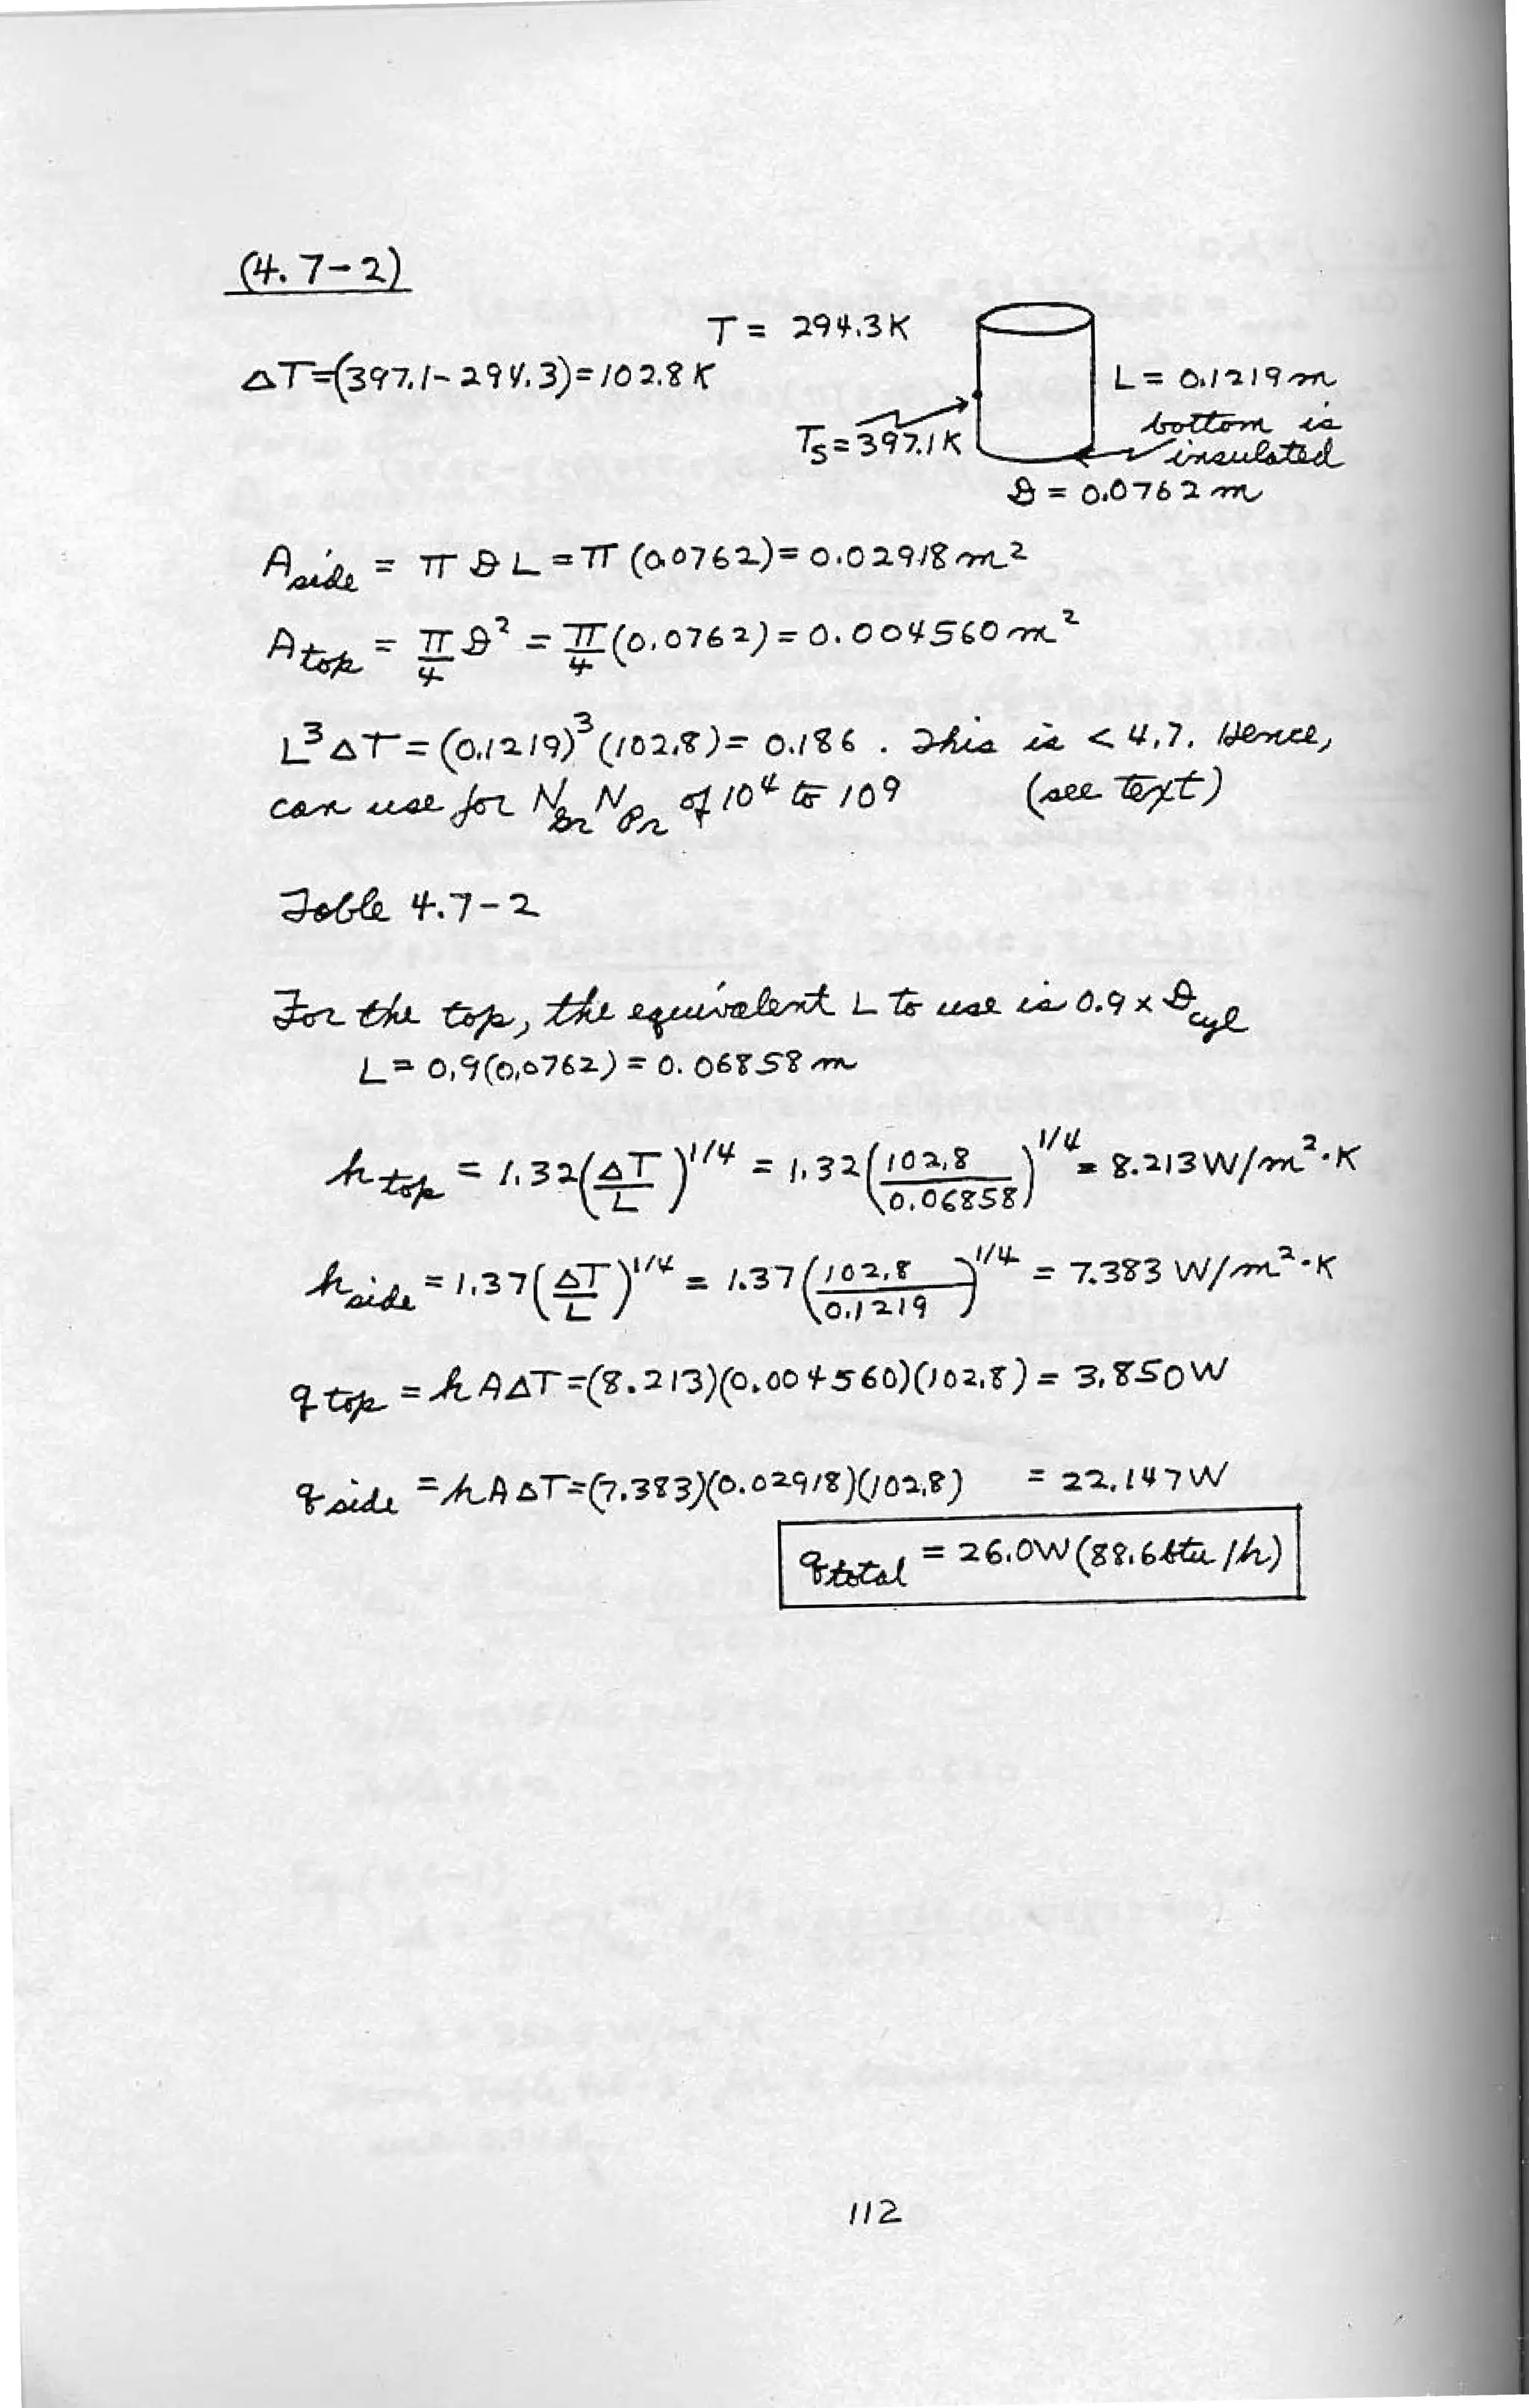 (4.7-2)
T = 294.3K
ΔT=(397.1-294.3)=102.8K
L = 0.1219m
bottom is
Ts=397.1K
insulated
D = 0.0762m
Aside = π D L = π (0.0762)= 0.02918m²
Atop = π/4 D² = π/4 (0.0762) = 0.004560m²
L³ΔT = (0.1219)³(102.8)= 0.186 . This is < 4.7. Hence,
can use for NGr NPr of 10⁴ to 10⁹ (see text)
Table 4.7-2
For the top, the equivalent L to use is 0.9 x Dcyl
L = 0.9(0.0762) = 0.06858m
htop = 1.32(ΔT/L)^1/4 = 1.32(102.8/0.06858)^1/4 = 8.213W/m²·K
hside = 1.37(ΔT/L)^1/4 = 1.37(102.8/0.1219)^1/4 = 7.383 W/m²·K
qtop = hAΔT=(8.213)(0.004560)(102.8) = 3.850W
qside = hAΔT=(7.383)(0.02918)(102.8) = 22.147W
qtotal = 26.0W(88.6btu/h)
112